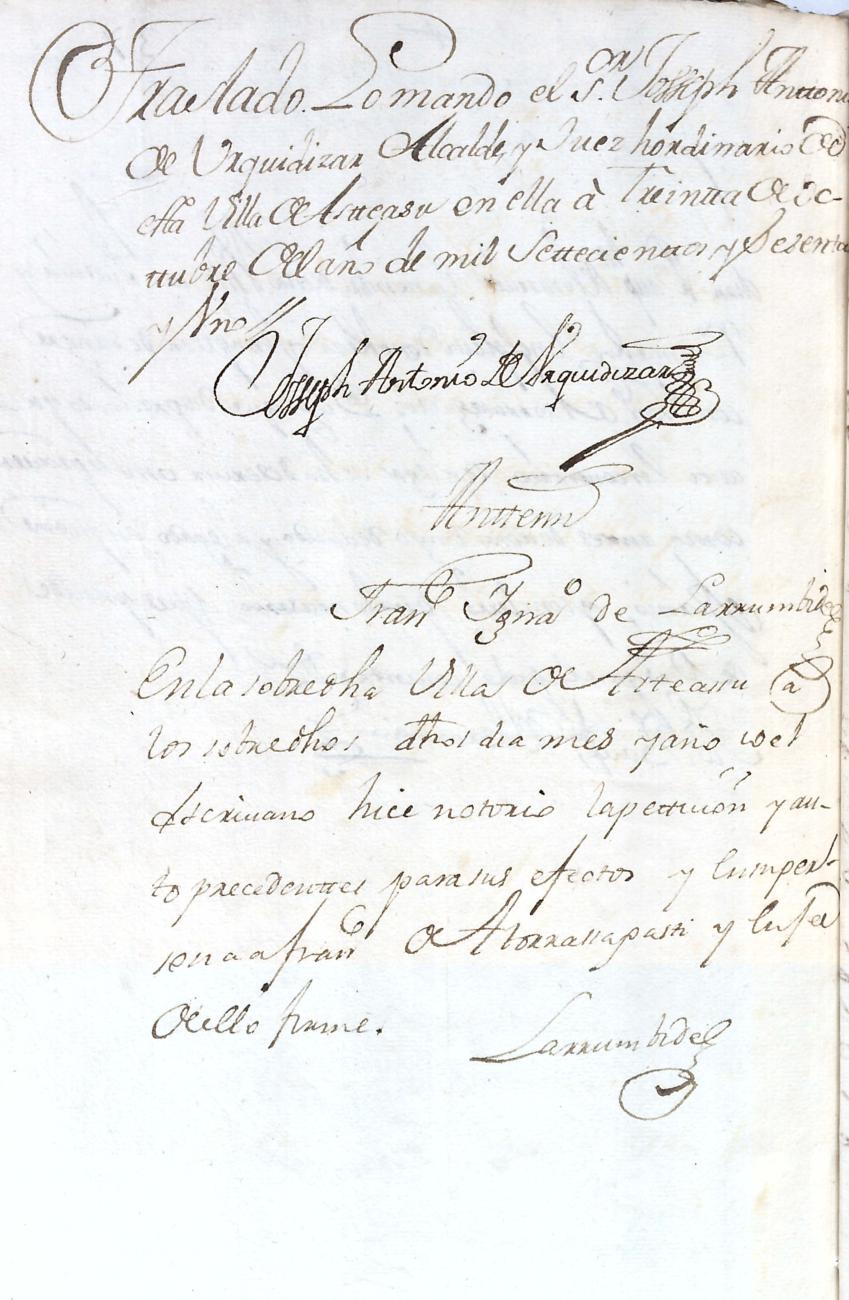 Traslado. Lo mando el S.or Joseph Anttoni
de Urquidizar Alcalde, y Juez hordinario de
esta Villa de Astteasu en ella à Treintta de oc-
ttubre del año de mil Settecienttos y Sesenta
y Uno //
Joseph Antonio de Urquidizar
Anttemi
Fran.co Igna.o de Larrumbide
En la sobredha Villa de Astteasu a
los sobredhos dhos dia mes y año yo el
Escrivano hice notorio la pettición y au-
to precedenttes para sus efectos y en su per-
sona a Fran.co de Atorrasagasti y en fee
de ello firme.
Larrumbide